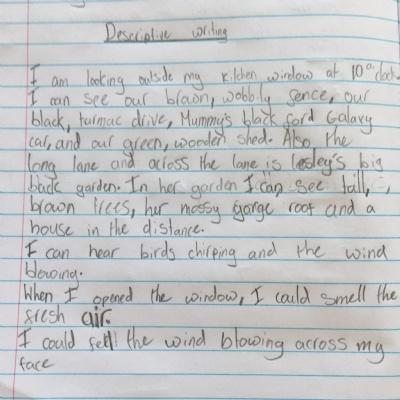 Descriptive writing
I am looking outside my kitchen window at 10 o'clock.
I can see our brown, wobbly fence, our
black, turmac drive, Mummy's black ford Galaxy
car, and our green, wooden shed. Also, the
long lane and across the lane is Lesley's big
back garden. In her garden I can see tall,
brown trees, her mossy garge roof and a
house in the distance.
I can hear birds chirping and the wind
blowing.
When I opened the window, I could smell the
fresh air.
I could fell the wind blowing across my
face